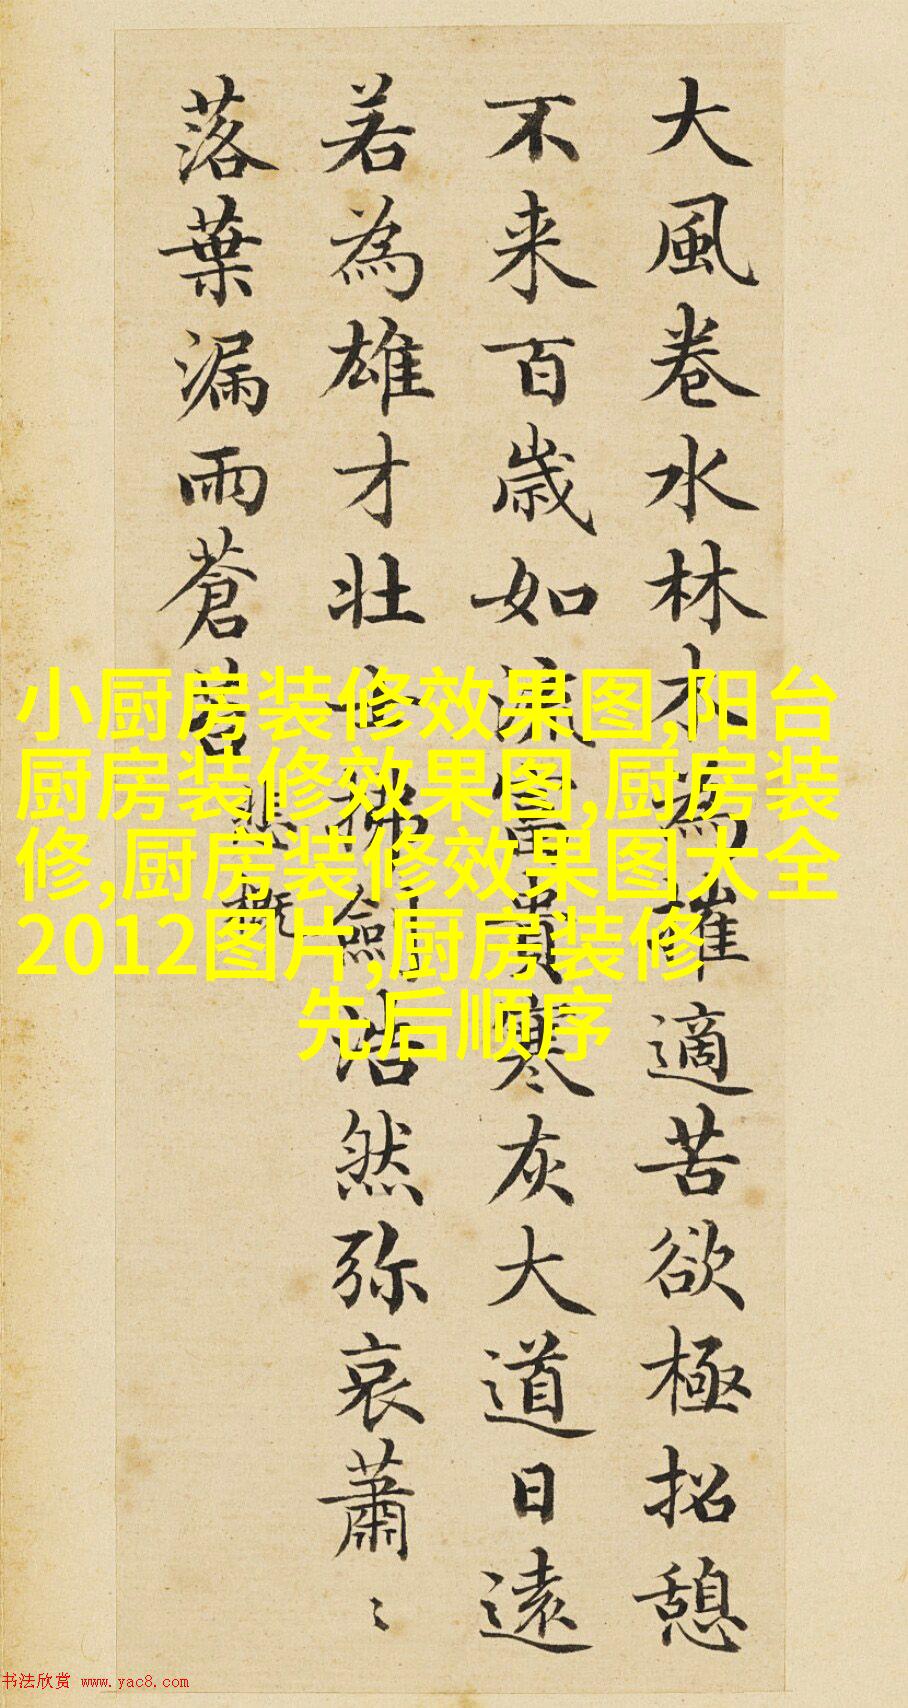 大風卷水林木為摧適苦欲極招憩
不来百歳如流富貴寒灰大道日遠
若為雄才壮士拂劒浩然弥哀蕭〻
落葉漏雨蒼苔
悲慨
小厨房装修效果图,阳台
厨房装修效果图,厨房装
修,厨房装修效果图大全
2012图片,厨房装修
先后顺序
书法欣赏 www.yac8.com